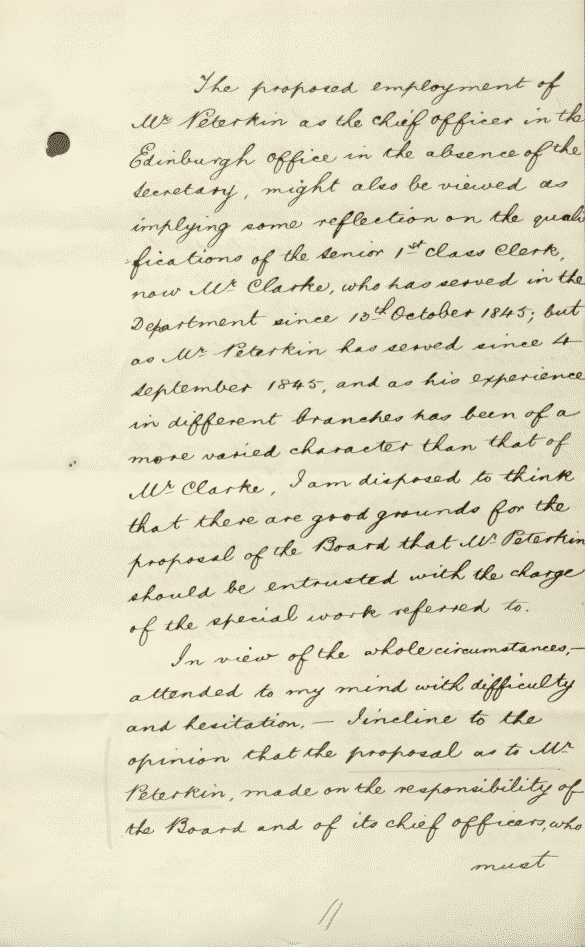 The proposed employment of
Mr. Peterkin as the chief officer in the
Edinburgh office in the absence of the
Secretary, might also be viewed as
implying some reflection on the quali
fications of the senior 1st class Clerk,
now Mr. Clarke, who has served in the
Department since 13th October 1845; but
as Mr. Peterkin has served since 4
September 1845, and as his experience
in different branches has been of a
more varied character than that of
Mr. Clarke, I am disposed to think
that there are good grounds for the
proposal of the Board that Mr. Peterkin
should be entrusted with the charge
of the special work referred to.
In view of the whole circumstances,—
attended to my mind with difficulty
and hesitation,— I incline to the
opinion that the proposal as to Mr.
Peterkin, made on the responsibility of
the Board and of its chief officers, who
must
11